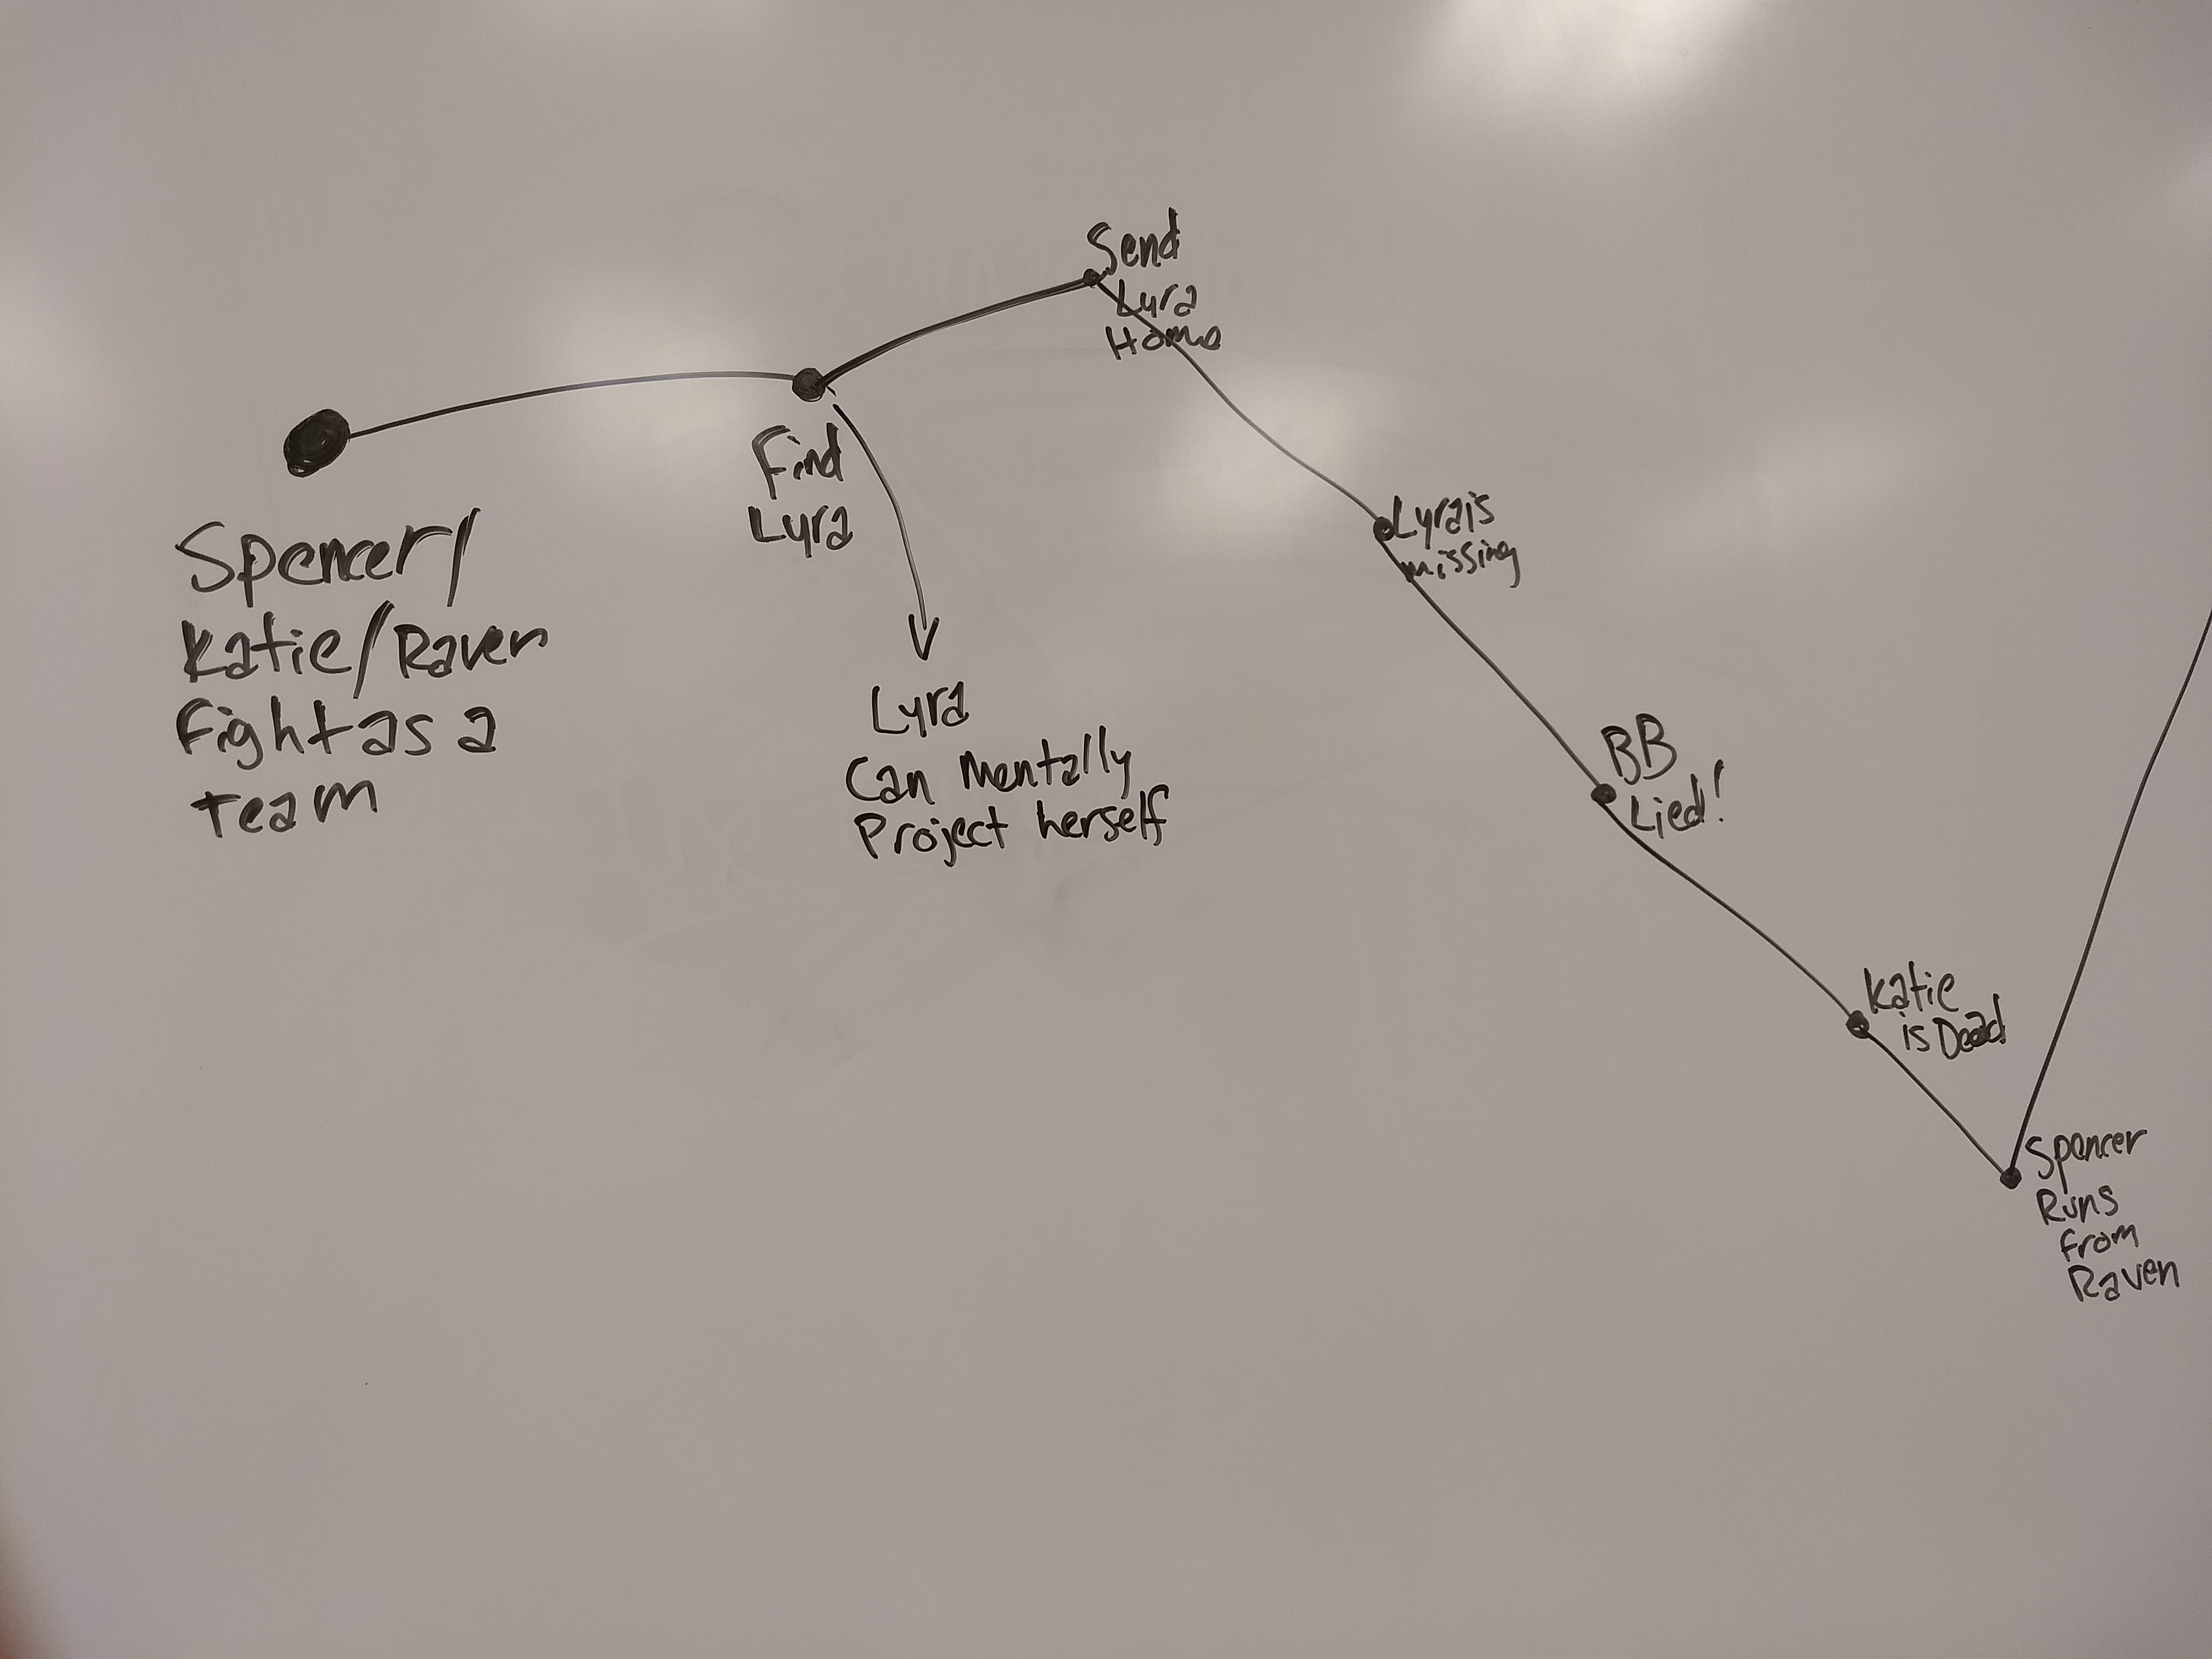 Spencer/
Katie/Raven
Fight as a
Team
Find
Lyra
Lyra
Can Mentally
Project herself
Send
Lyra
Home
Lyra is
missing
BB
Lied!
Katie
is Dead
Spencer
Runs
From
Raven